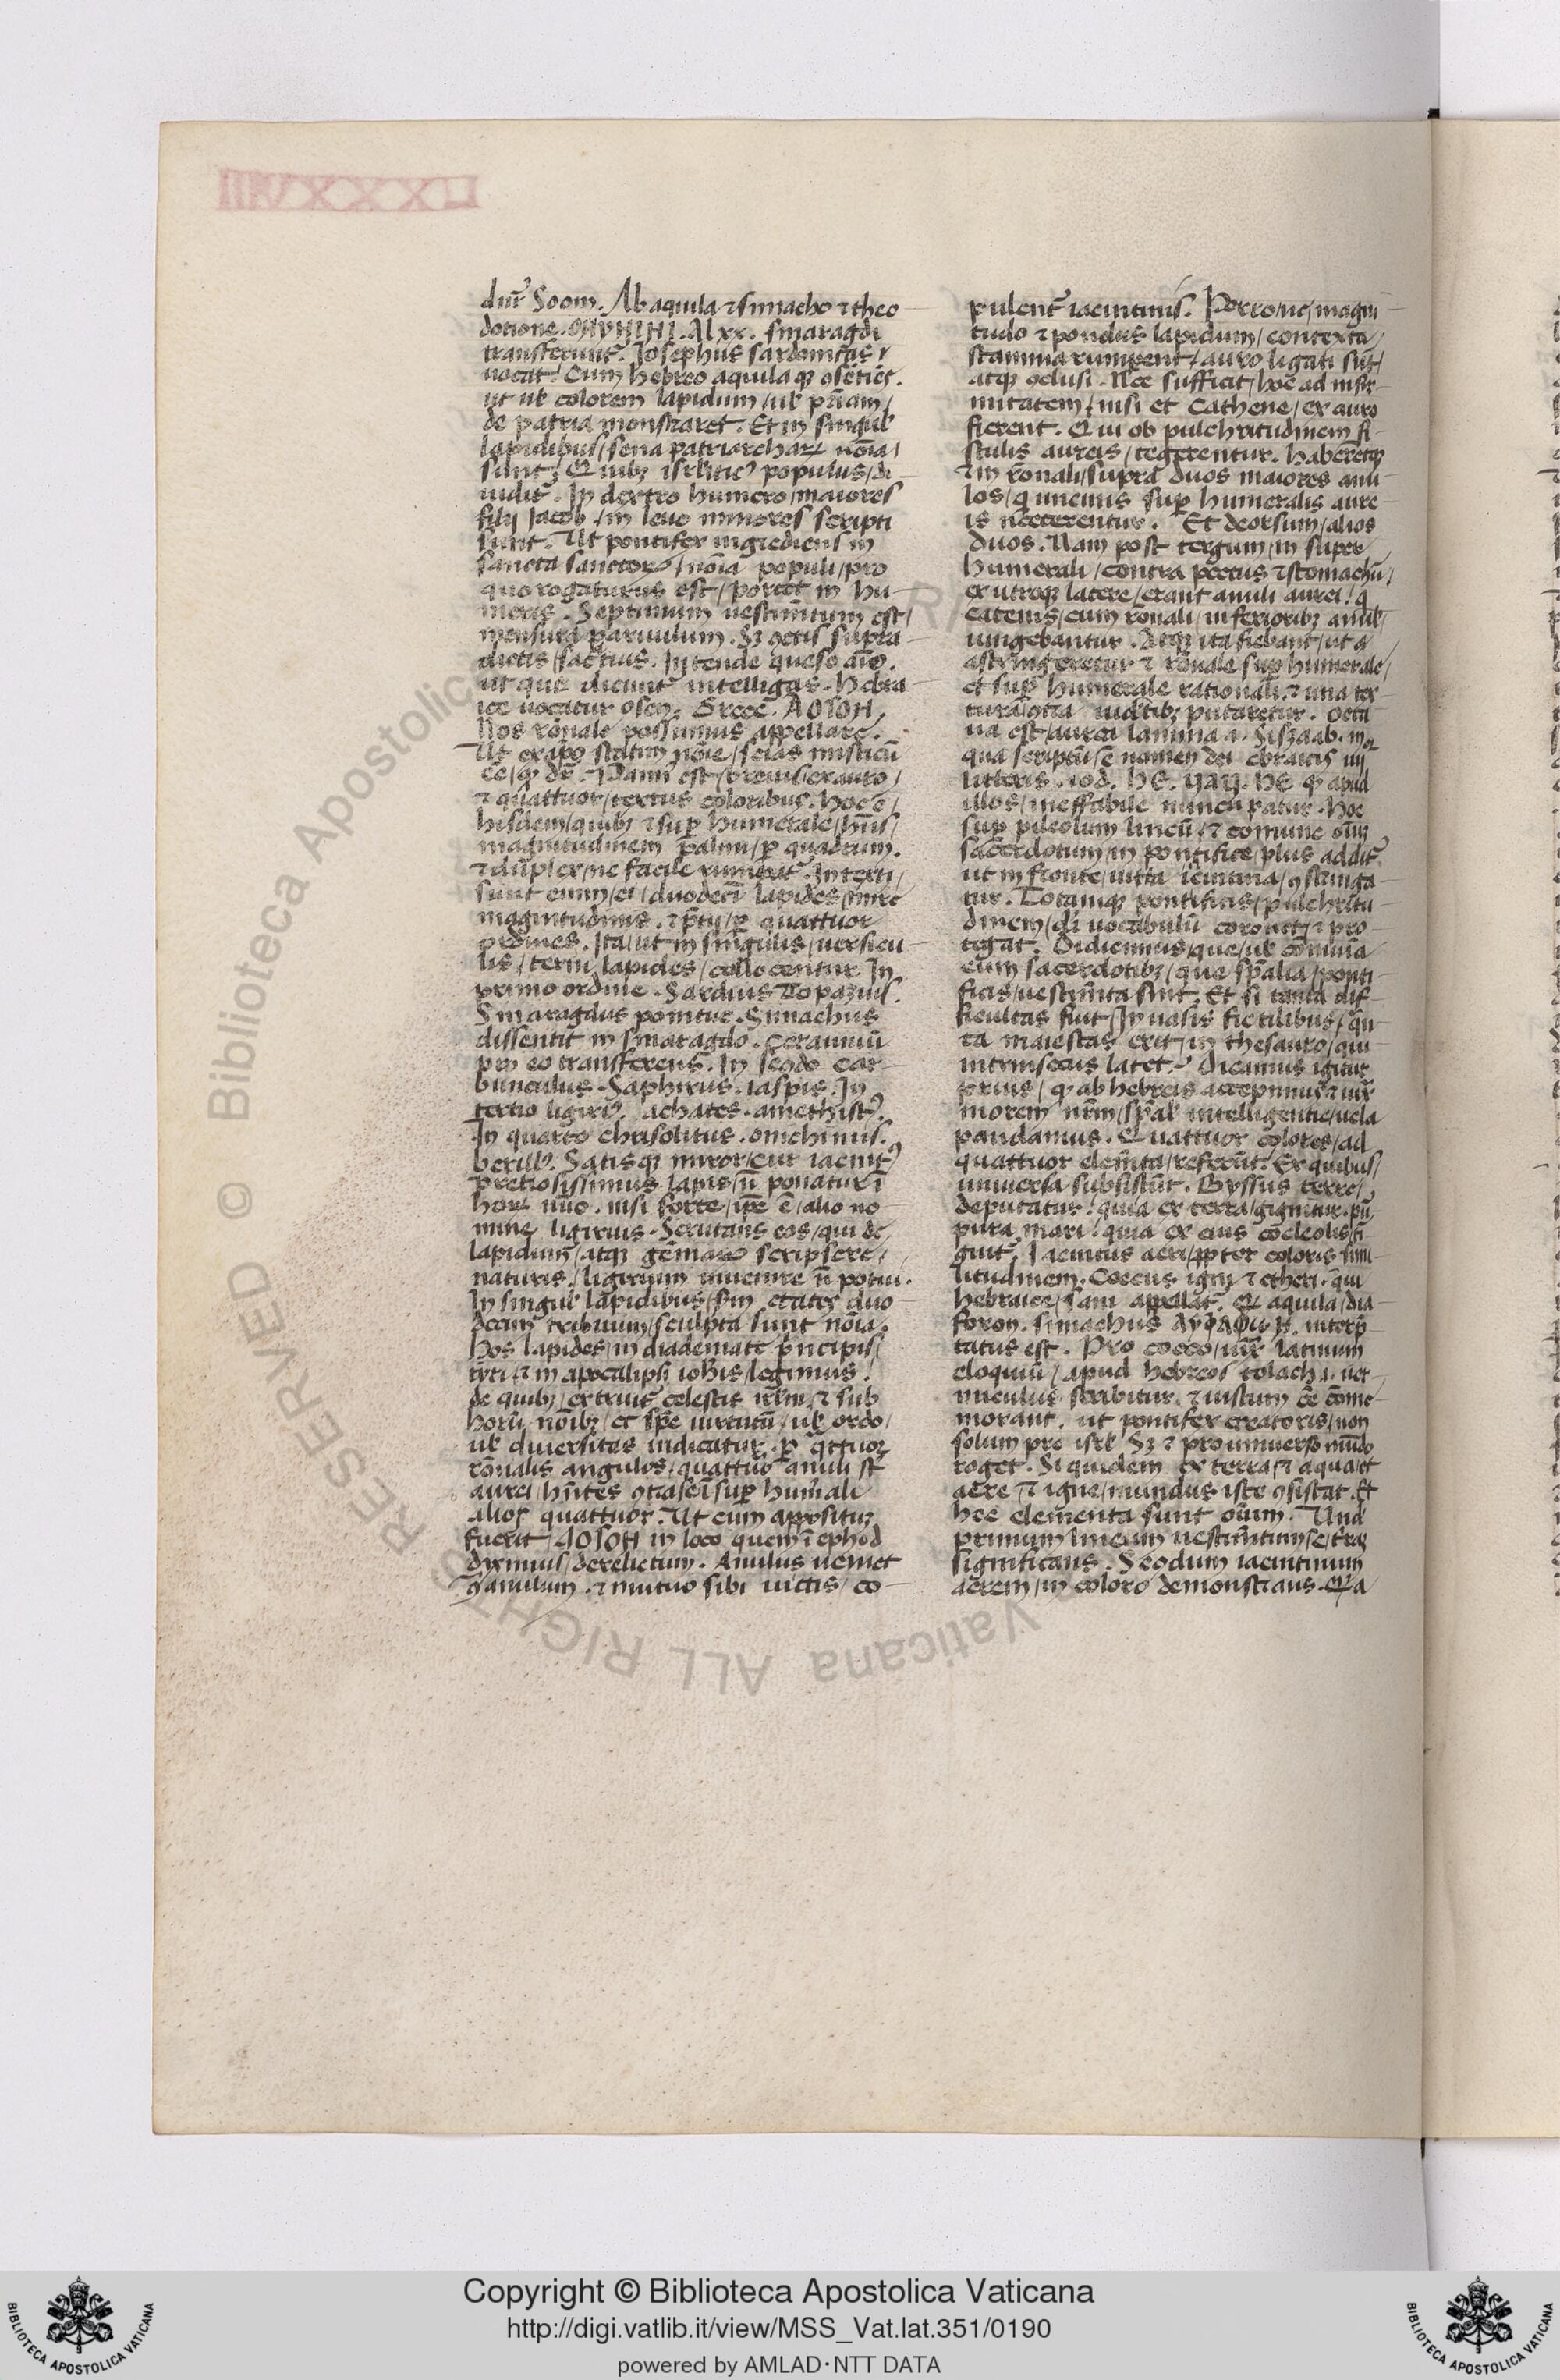 LXXXXVIII
dur̄ Soom. Ab aquila ⁊ simacho ⁊ theo
dotione. OHYHIHI. Al xx. smaragdi
transferunt̄. Josephus sardonicas
uocat. Cum hebreo aquila qꝫ ↄsētiēs.
de patria monstraret. Et in singul̄
lapidibus / sena patriarchaꝝ nōīa /
sunt. Quibꝫ isrl̄iticꝰ populus / di
uidit̄. In dextro humero / maiores
filij Jacob / in leuo minores scripti
sunt. Ut pontifex ingrediens in
sancta sanctoꝝ / nōīa populi / pro
quo rogaturus est / portet in hu
meris. Septimum uestim̄tum est /
mensura paruulum. Sꝫ octis supra
dictis / sac̄tius. Intende queso aīo.
ut que dicunt̄ intelligas. Hebra
ice uocatur osen. Grece. ΛΟΓΟΗ
Nos rōnale possumus appellare.
Ut ex ip̄o statim nōīe / scias misticū
eē / qꝫ dr̄. Pann̄ est / breuis / ex auro /
⁊ quattuor / textus coloribus. hoc ē /
hisdem / quibꝫ ⁊ sup̄ humerale / hn̄s /
magnitudinem palmi / ꝑ quadrum.
⁊ duplex / ne facile rumpat̄. Intexti /
sunt enim / ei / duodecī lapides / mire
magnitudinis. ⁊ p̄tij / ꝑ quattuor
ordines. Ita / ut in singulis / uersicu
lis / terni lapides / collocentur. In
primo ordine. Sardius Topazius.
Smaragdus ponitur. Simachus
dissentit in smaragdo. Cerauniū
pro eo transferens. In sc̄do car
bunculus. Saphirus. iaspis. In
tertio ligiriꝰ. achates. amethistꝰ.
In quarto chrisolitus. onichinus.
berillꝰ. Satisqꝫ miror / cur iacintꝰ
pretiosissimus lapis / n̄ ponatur ī
hoꝝ nūo. nisi forte / ip̄e ē / alio no
mine ligirius. Scrutans eos / qui de
lapidum / atqꝫ gēmaꝝ scripsere /
naturis / ligirium inuenire n̄ potui.
In singul̄ lapidibus / s̄m etates duo
decim tribuum / sculpta sunt nōīa.
Hos lapides / in diademate p̄ncipis /
tyri / ⁊ in apocalipsi iohīs / legimus.
de quibꝫ / extruit̄ celestis ierl̄m / ⁊ sub
horū nōībꝫ / et sp̄e uirtutū / ul̄ ordo /
ul̄ diuersitas indicatur. ꝑ q̄ttuoꝝ
rōnalis angulos / quattuor anuli st̄
aurei / hn̄tes ↄtra se ī sup̄ hum̄ali
alios quattuor. Ut cum appositum
fuerit ΛΟΓΟΗ in loco quem ī ephod
diximus / derelictum. Anulus ueniet
ↄ̄ anulum. ⁊ mutuo sibi uictis / co
pulent̄ iacintinis. Porro / ne / magni
tudo ⁊ pondus lapidum / contexta /
stamina rumperet / auro ligati sūt /
atqꝫ ↄclusi. Nec sufficit / hoc ad infir
mitatem / nisi et Cathene / ex auro
fierent. Qui ob pulchritudinem fi
stulis aureis / tegerentur. haberetqꝫ
⁊ in rōnali / supra duos maiores anu
los / q̄ uncinis sup̄ humeralis aure
is necterentur. Et deorsum / alios
duos. Nam post tergum / in super
humerali / contra pectus ⁊ stomachū /
ex utroqꝫ latere / erant anuli aurei / q̄
catenis / cum rōnali / inferioribꝫ anul̄ /
iungebantur. Atqꝫ ita fiebant / ut a
astringeretur ⁊ rōnale sup̄ humerale /
et sup̄ humerale rationali. ⁊ una tex
tura ↄtra uid̄tibꝫ putaretur. Octa
ua est / aurea lamina .i. Siszaab. in
qua scriptū ē nomen dei ebraicis iiij
litteris. iod. HE. UAU. HE. qꝫ apud
illos / ineffabile nuncupatur. Hoc
sup̄ pileolum lineū / ⁊ comune oīuꝫ
sacerdotum / in pontifice / plus addit̄.
ut in fronte / uitta iacintina / ↄstringa
tur. Totamqꝫ pontificis / pulchritu
dinem / dī uocabulū coronet / ⁊ pro
tegat. Didicimus / que / ul̄ comunia
cum sacerdotibꝫ / que sp̄alia / ponti
ficis / uestim̄ta sint. Et si tanta dif
ficultas fuit / In uasis fictilibus / q̄n
ta maiestas erit / in thesauro / qui
intrinsecus latet. Dicamus igitur
prius / qꝫ ab hebreis accepimus / ⁊ iux̄
morem nr̄m / sp̄al̄ intelligentie / uela
pandamus. Quattuor colores / ad
quattuor elem̄ta / referūt̄. Ex quibus /
uniuersa subsistūt. Byssus terre /
deputatur / quia ex terra / gignitur. pur
pura mari / quia ex eius cocleolis / ti
guit̄. Jacintus aeri / ꝓpter coloris simi
litudinem. Coccus igni ⁊ etheri. qui
hebraice / sani appellat̄. Qꝫ aquila / dia
foron. simachus ΔΥΟΛΟΦΗ. interp̄
tatus est. Pro cocco / iux̄ latinum
eloquiū / apud hebreos tolach .i. uer
miculus scribitur. ⁊ iustum eē cōme
morant. ut pontifex creatoris / non
solum pro isrl̄. Sꝫ ⁊ pro uniuerso mūdo
roget. Si quidem ex terra / ⁊ aqua / et
aere / ⁊ igne / mundus iste ↄsistat. Et
hec elementa sunt oīum. Und̄
primum lineum uestim̄tum / tr̄aꝫ
significans. Secdum iacintinum
aerem / in colore demonstrans. Qꝫ a
Copyright © Biblioteca Apostolica Vaticana
http://digi.vatlib.it/view/MSS_Vat.lat.351/0190
powered by AMLAD·NTT DATA
BIBLIOTECA APOSTOLICA VATICANA
BIBLIOTECA APOSTOLICA VATICANA
© Biblioteca Apostolica Vaticana ALL RIGHTS RESERVED